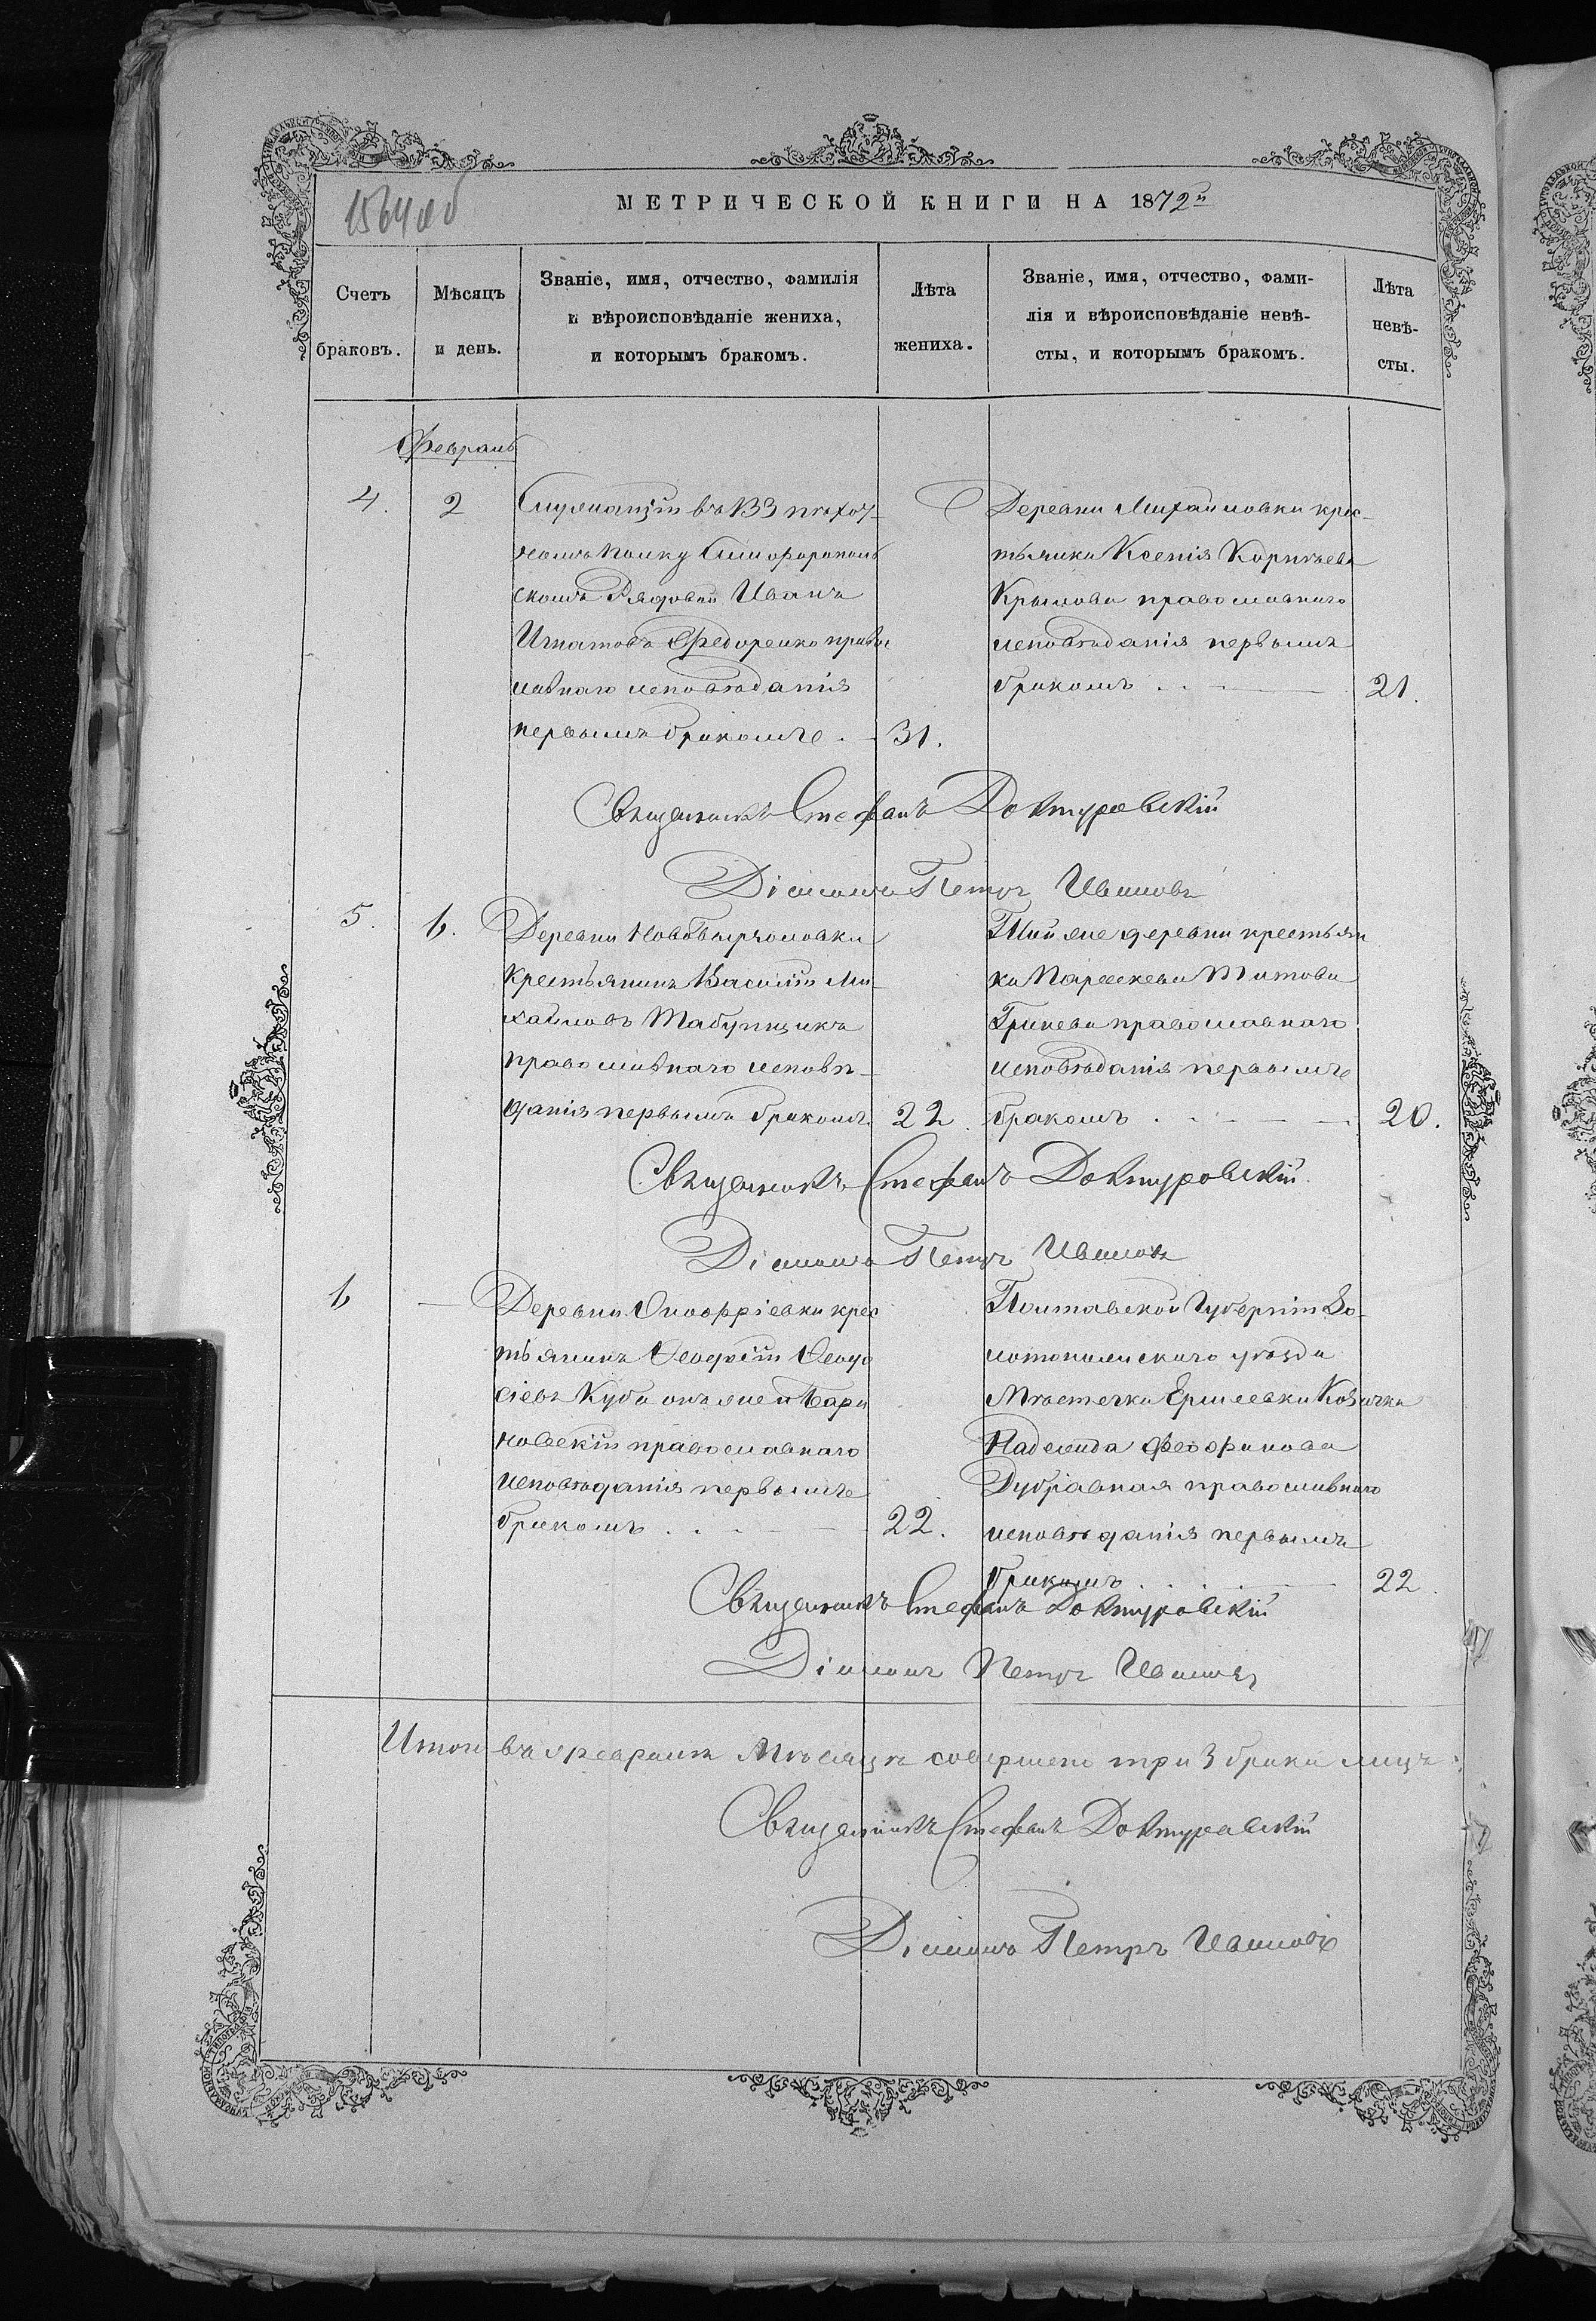 1564 об
МЕТРИЧЕСКОЙ КНИГИ НА 1872й
Счетъ
браковъ.
Мѣсяцъ
и день.
Званіе, имя, отчество, фамилія
и вѣроисповѣданіе жениха,
и которымъ бракомъ.
Лѣта
жениха.
Званіе, имя, отчество, фами-
лія и вѣроисповѣданіе невѣ-
сты, и которымъ бракомъ.
Лѣта
невѣ-
сты.
Февраль
4. 2
Служащій въ 133 пѣхот-
номъ полку Симферополь
скомъ Рядовый Иванъ
Игнатовъ Федоренко право
славнаго исповѣданія
первымъ бракомъ 31.
Деревни Михайловки крес-
тьянка Ксенія Корнѣева
Крымова православнаго
исповѣданія первымъ
бракомъ 21.
Священникъ Стефанъ Доктуровскій
Діаконъ Петръ Ивановъ
5. 6.
Деревни
крестьянинъ Василій Ми
хайловъ Табунщикъ
православнаго исповѣ-
данія первымъ бракомъ 22.
Той же деревни крестьян
ка Параскева Титова
Гринева православнаго
исповѣданія первымъ
бракомъ 20.
Священникъ Стефанъ Доктуровскій
Діаконъ Петръ Ивановъ
6 —
Деревни Онофріевки крес
тьянинъ Ѳеодосій Ѳеодо
сіевъ Куба онъ же и Бара
новскій православнаго
исповѣданія первымъ
бракомъ 22.
Полтавской Губерніи Зо-
лотоношскаго уѣзда
Мѣстечка Козачка
Надежда
Дубравная православнаго
исповѣданія первымъ
бракомъ 22.
Священникъ Стефанъ Доктуровскій
Діаконъ Петръ Ивановъ
Итого въ Февралѣ Мѣсяцѣ совершено три 3 брака лицъ
Священникъ Стефанъ Доктуровскій
Діаконъ Петръ Ивановъ